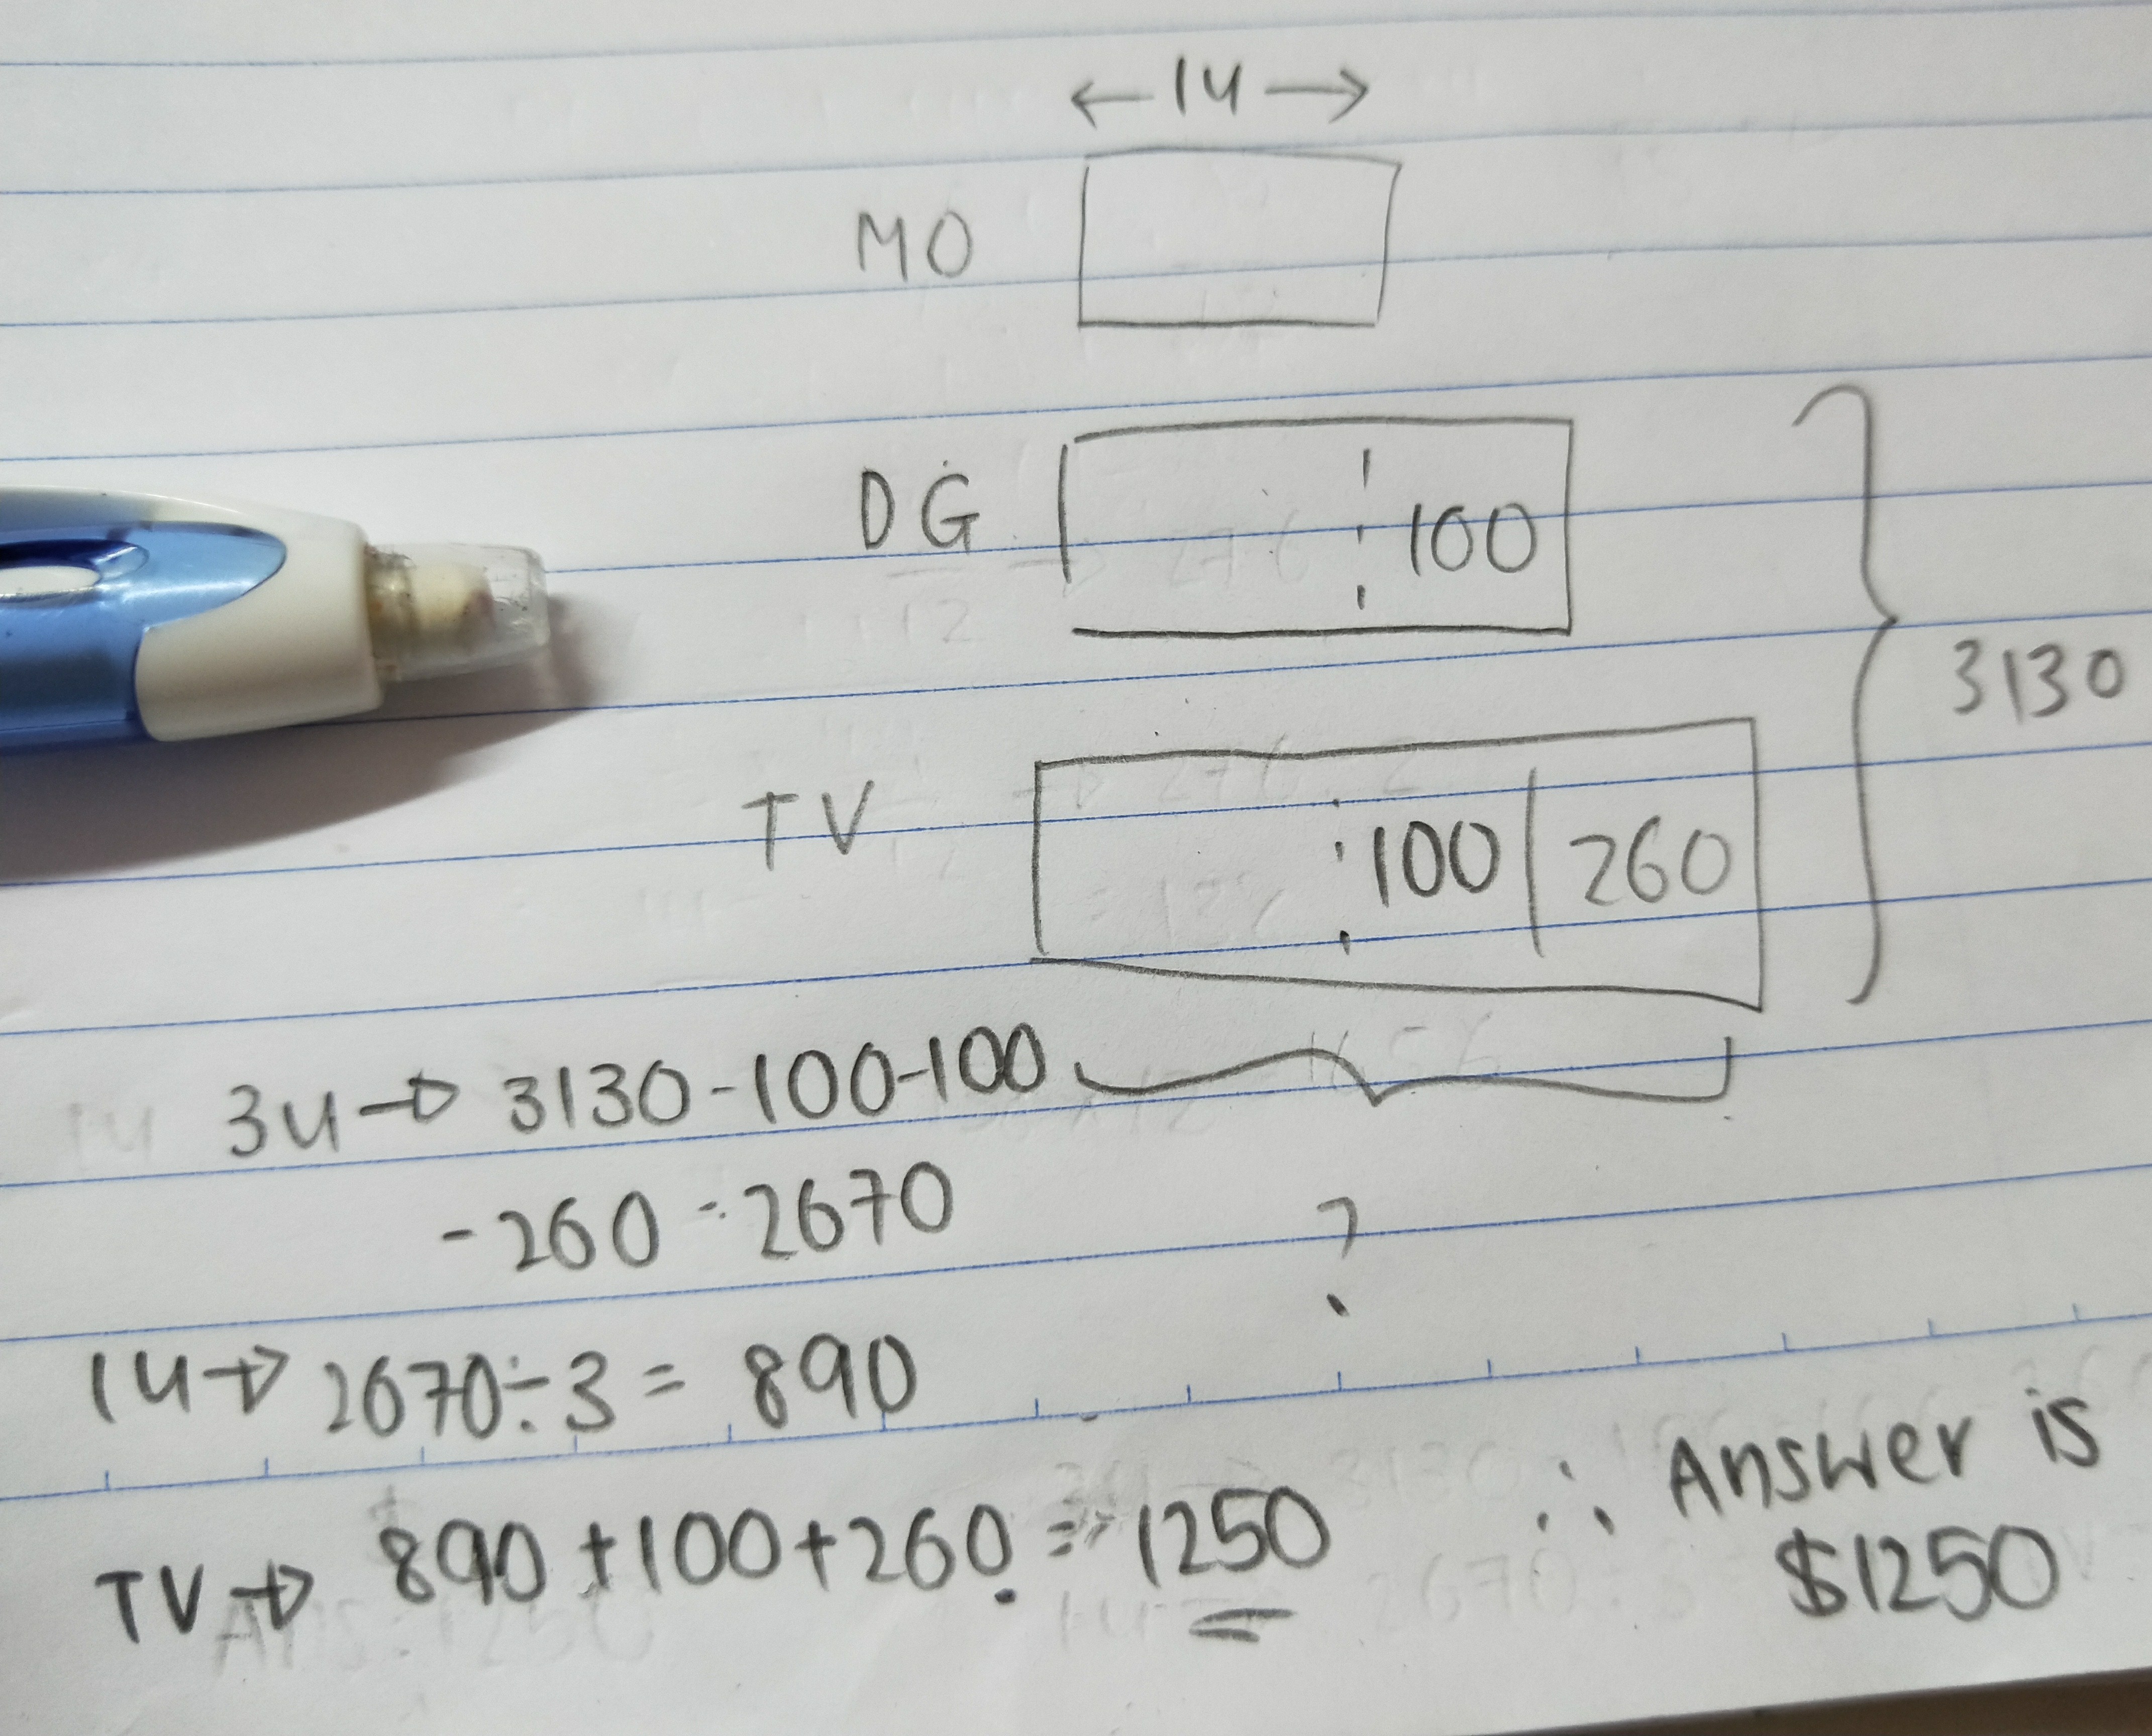 ← 1u →
MO
DG 100
3130
TV 100 260
3u → 3130-100-100
-260 = 2670
?
1u → 2670÷3 = 890
TV → 890+100+260 = 1250
∴ Answer is
$1250